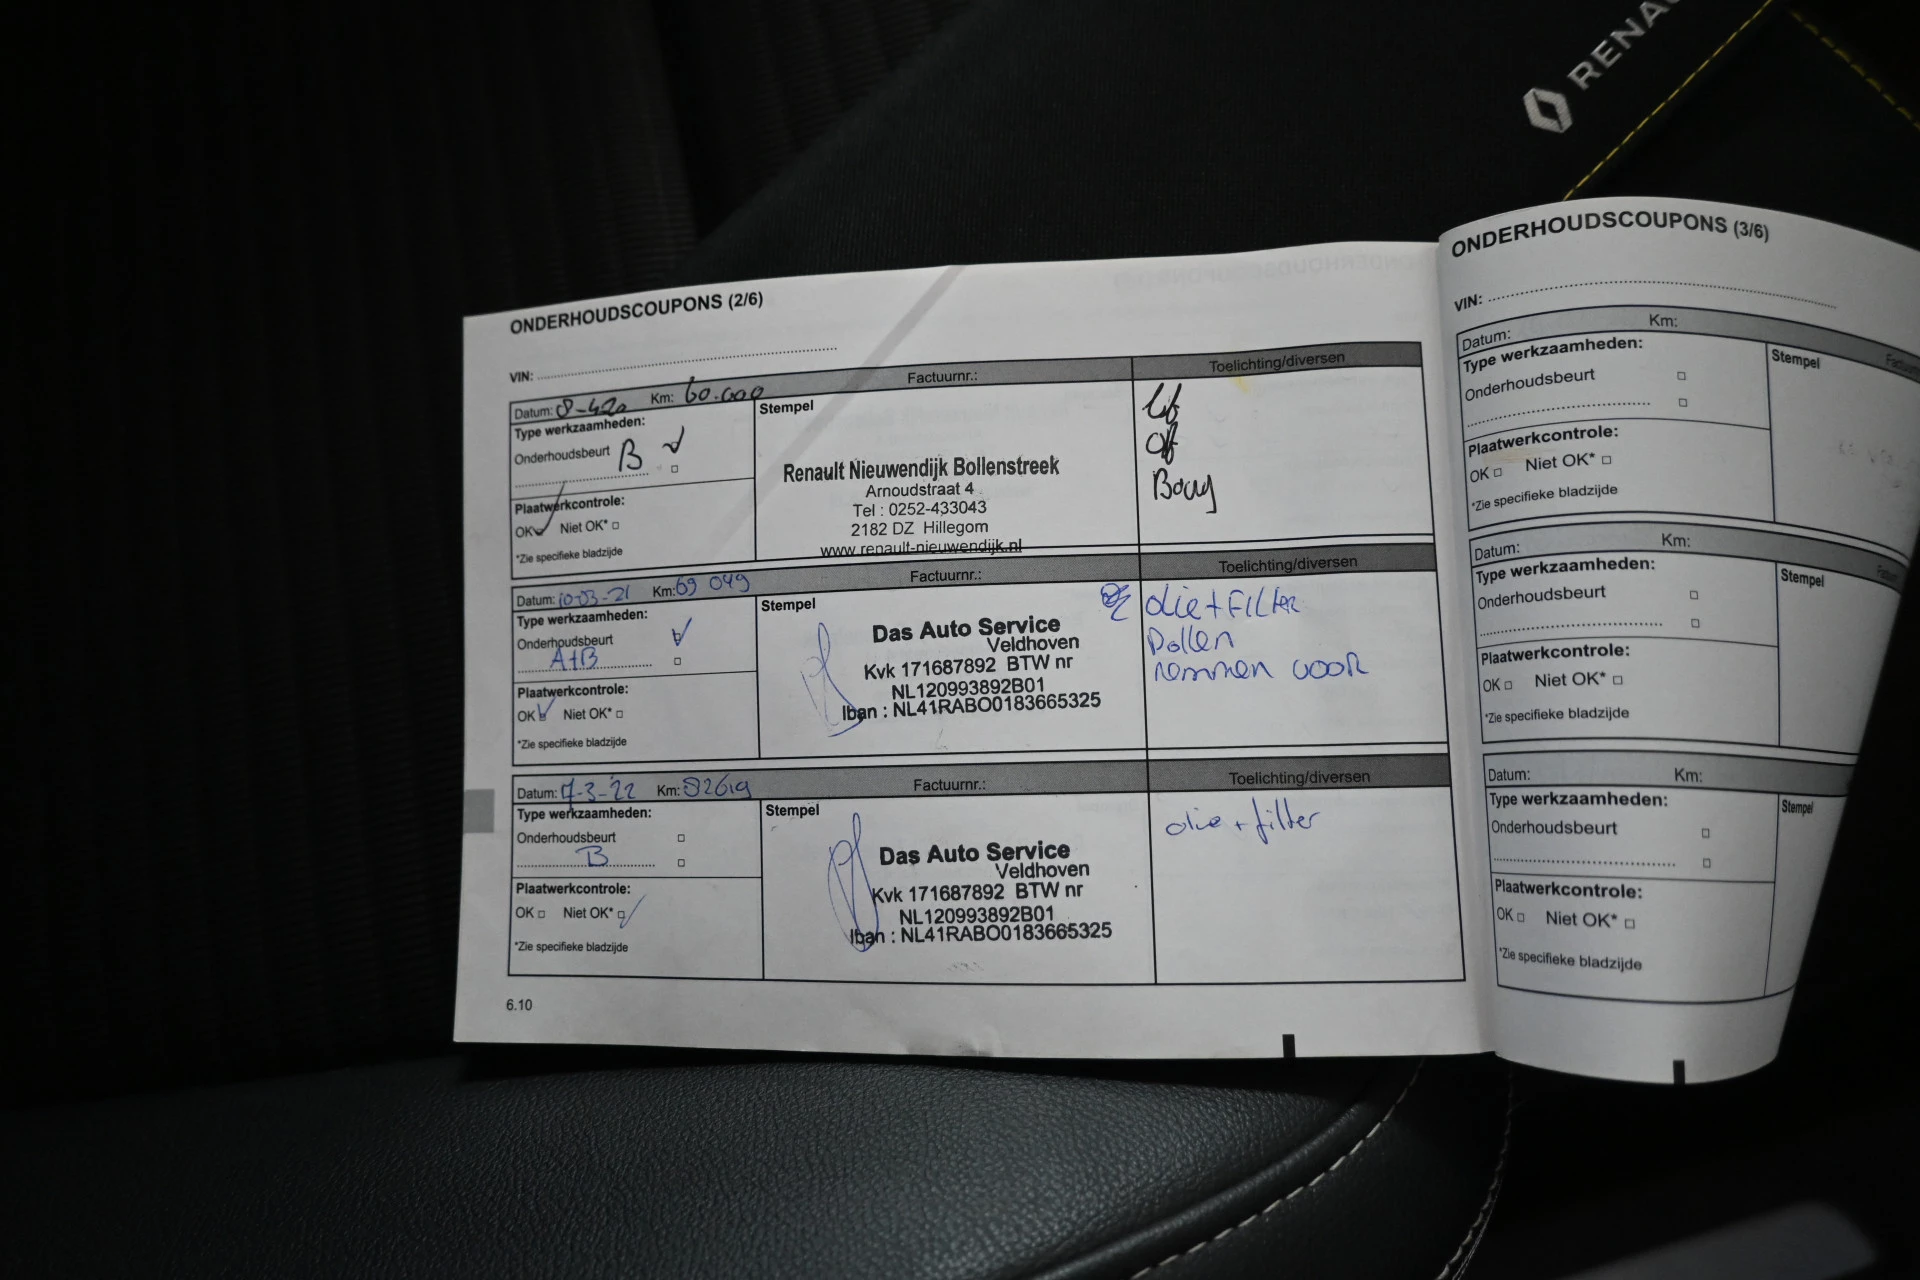 RENA
ONDERHOUDSCOUPONS (2/6)
VIN:
Datum: 8-420 Km: 60.000 Factuurnr.: Toelichting/diversen
Type werkzaamheden:
Onderhoudsbeurt B
Plaatwerkcontrole:
OK Niet OK*
*Zie specifieke bladzijde
Stempel
Renault Nieuwendijk Bollenstreek
Arnoudstraat 4
Tel : 0252-433043
2182 DZ Hillegom
www.renault-nieuwendijk.nl
Datum: 10-03-21 Km: 69 049 Factuurnr.: Toelichting/diversen
Type werkzaamheden:
Onderhoudsbeurt
A+B
Plaatwerkcontrole:
OK Niet OK*
*Zie specifieke bladzijde
Stempel
Das Auto Service
Veldhoven
Kvk 171687892 BTW nr
NL120993892B01
Iban : NL41RABO0183665325
olie + FILtER
Pollen
remmen voor
Datum: 17-3-22 Km: 82619 Factuurnr.: Toelichting/diversen
Type werkzaamheden:
Onderhoudsbeurt
B
Plaatwerkcontrole:
OK Niet OK*
*Zie specifieke bladzijde
Stempel
Das Auto Service
Veldhoven
Kvk 171687892 BTW nr
NL120993892B01
Iban : NL41RABO0183665325
olie + filter
6.10
ONDERHOUDSCOUPONS (3/6)
VIN:
Datum: Km:
Type werkzaamheden:
Onderhoudsbeurt
Plaatwerkcontrole:
OK Niet OK*
*Zie specifieke bladzijde
Stempel
Datum: Km:
Type werkzaamheden:
Onderhoudsbeurt
Plaatwerkcontrole:
OK Niet OK*
*Zie specifieke bladzijde
Stempel
Datum: Km:
Type werkzaamheden:
Onderhoudsbeurt
Plaatwerkcontrole:
OK Niet OK*
*Zie specifieke bladzijde
Stempel